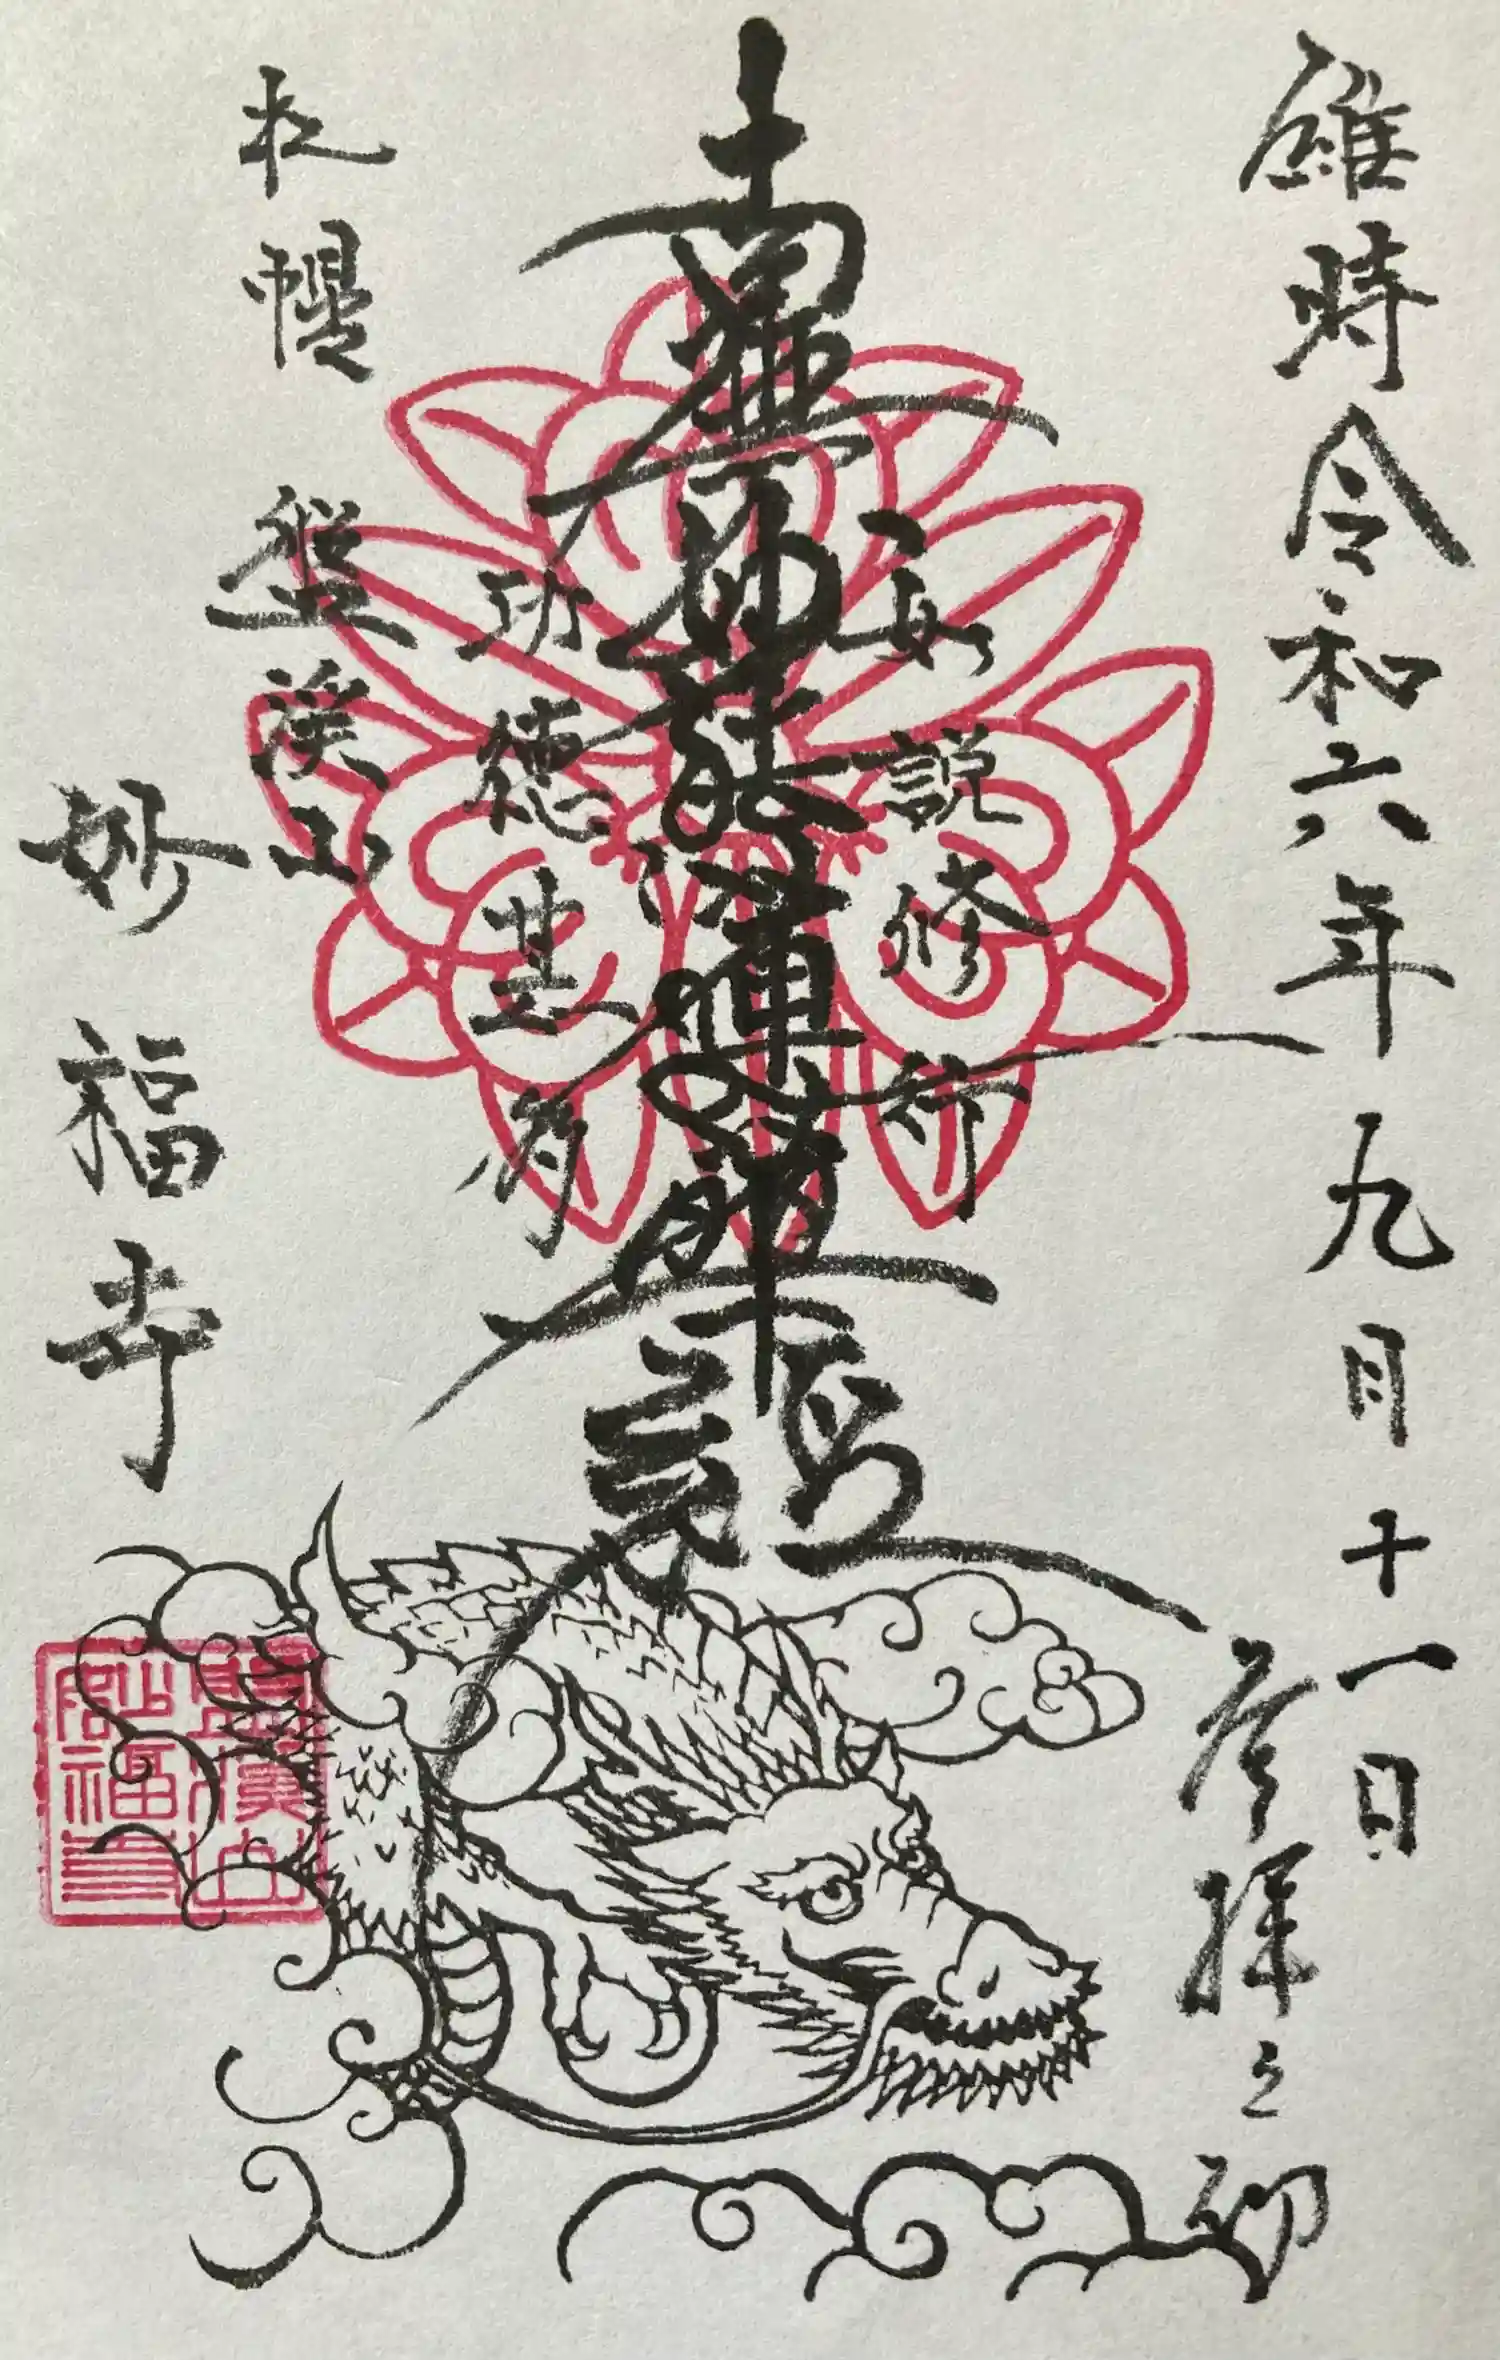 維時令和六年九月十一日
参拝之印
如説修行
南無妙法蓮華経
功徳甚有
札幌
盤渓山
妙福寺
盤渓山
妙福寺